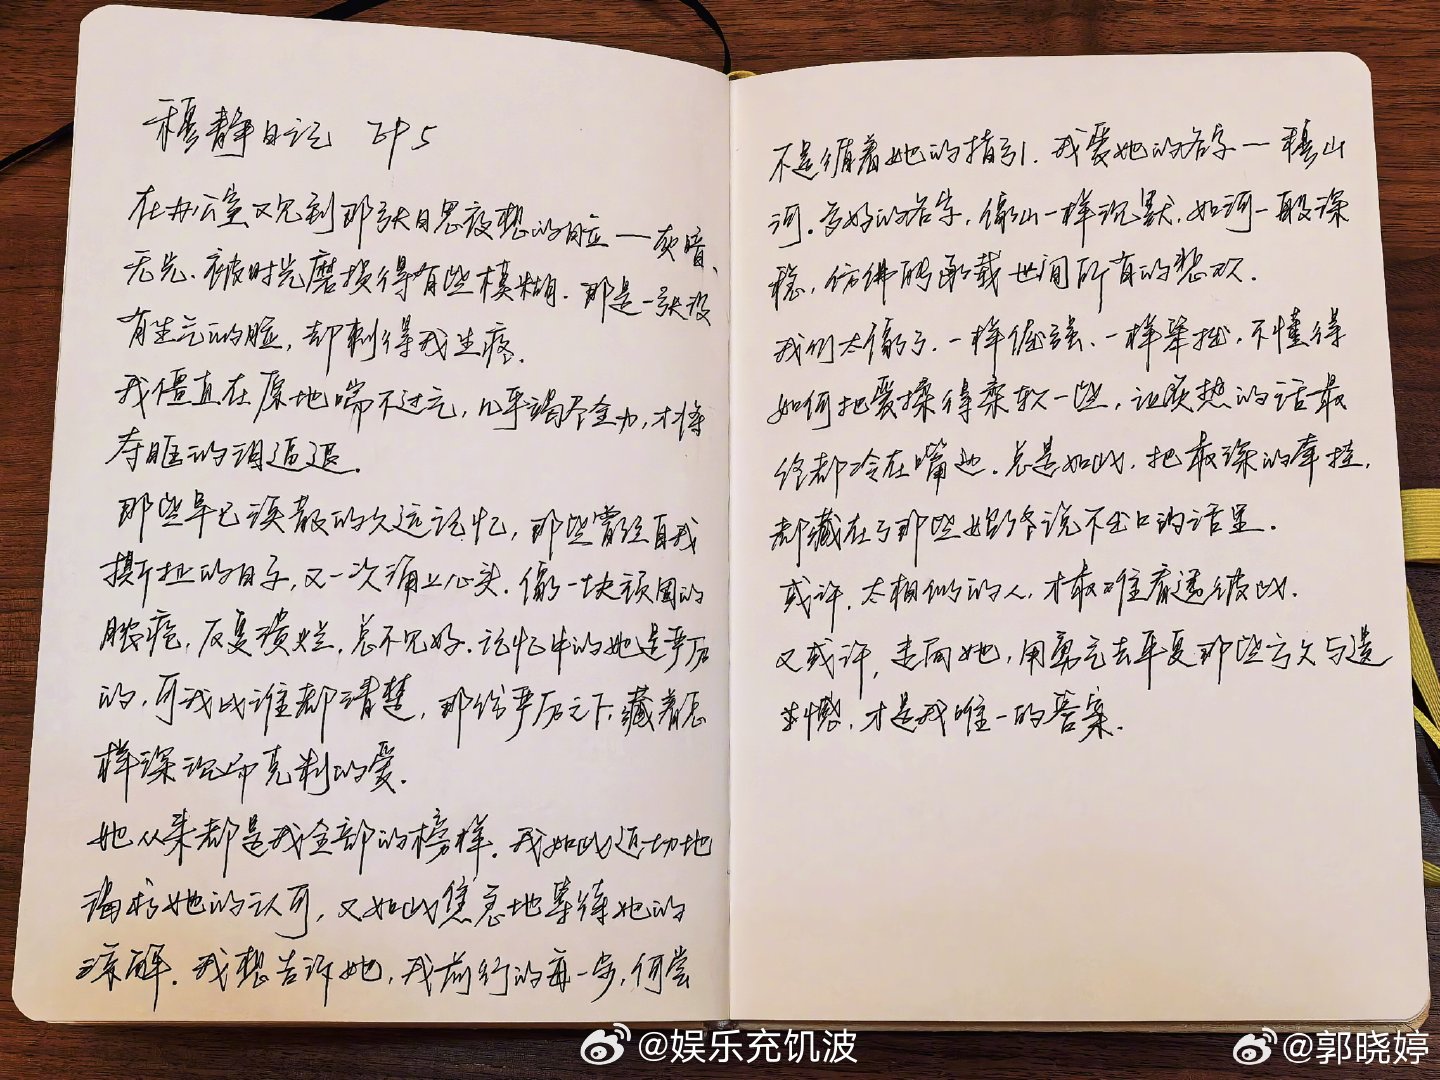 穆静日记 EP5
在办公室又见到那张日思夜想的脸——灰暗、
无光、被时光磨损得有些模糊。那是一张没
有生气的脸，却刺得我生疼。
我僵直在原地喘不过气，几乎竭尽全力，才将
夺眶的泪逼退。
那些早已涣散的久远记忆，那些曾经自我
撕扯的日子，又一次涌上心头。像一块顽固的
脓疮，反复溃烂，总不见好。记忆中的她是严厉
的，可我比谁都清楚，那份严厉之下，藏着怎
样深沉而克制的爱。
她从来都是我全部的榜样。我如此迫切地
渴求她的认可，又如此焦急地等待她的
谅解。我想告诉她，我前行的每一步，何尝
不是循着她的指引。我爱她的名字——穆山
河。多好的名字，像山一样沉默，如河一般深
稳，仿佛能承载世间所有的悲欢。
我们太像了、一样倔强、一样笨拙，不懂得
如何把爱揉得柔软一些，让炙热的话最
终都冷在嘴边。总是如此，把最深的牵挂，
都藏在了那些始终说不出口的话里。
或许，太相似的人，才最难看透彼此。
又或许，走向她，用勇气去平复那些亏欠与遗
憾，才是我唯一的答案。
@娱乐充饥波
@郭晓婷